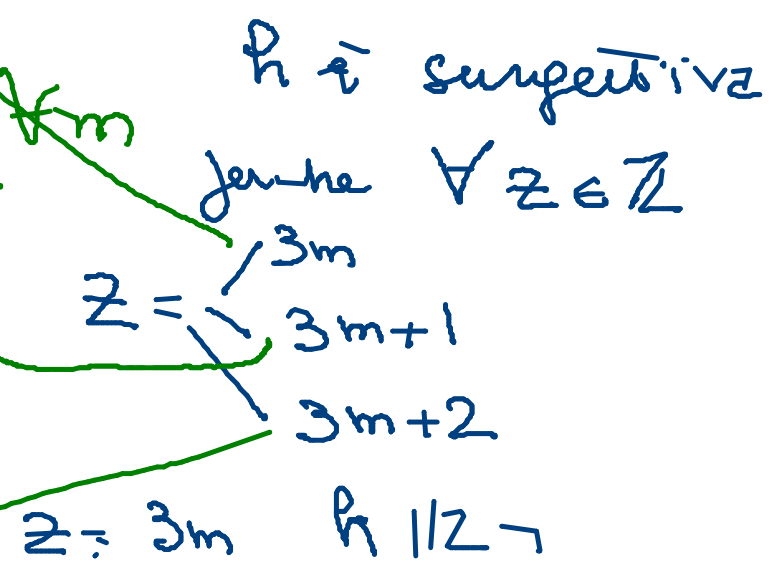 h è surgettiva
m
perche ∀ z ∈ ℤ
z =
3m
3m+1
3m+2
z = 3m h